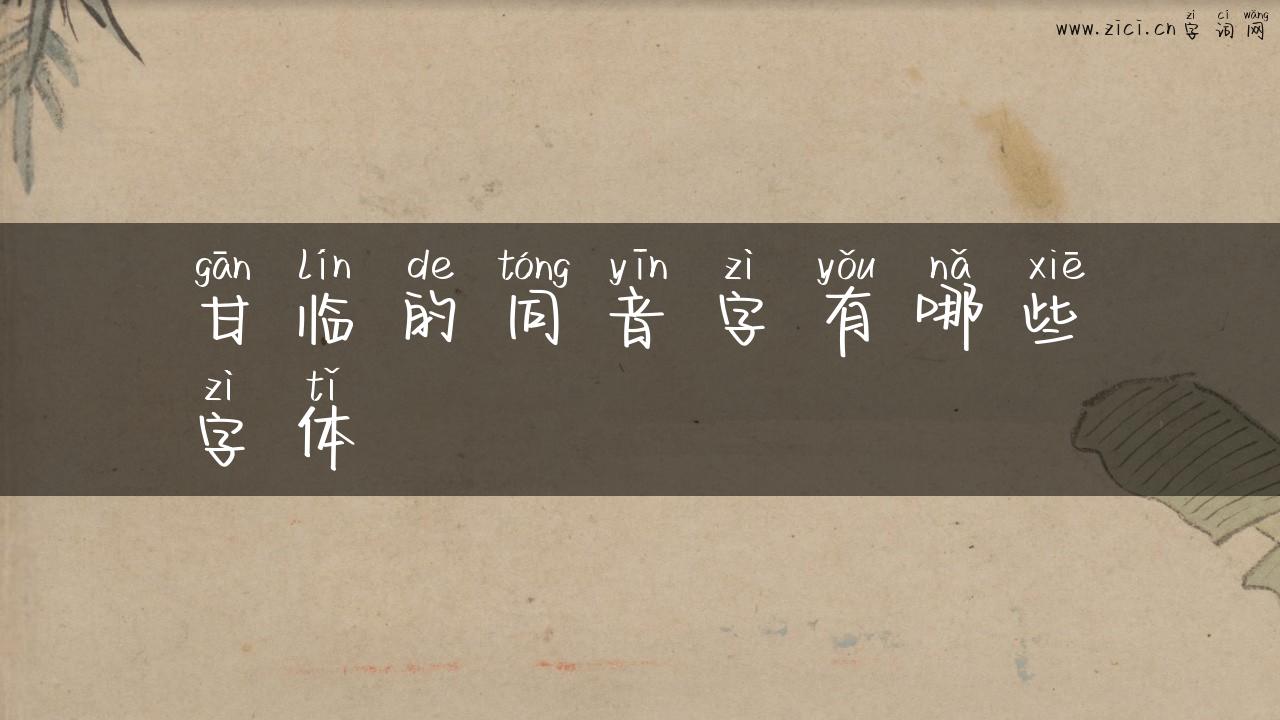 zì cí wǎng
www.zici.cn 字词网
gān lín de tóng yīn zì yǒu nǎ xiē
甘临的同音字有哪些
zì tǐ
字体